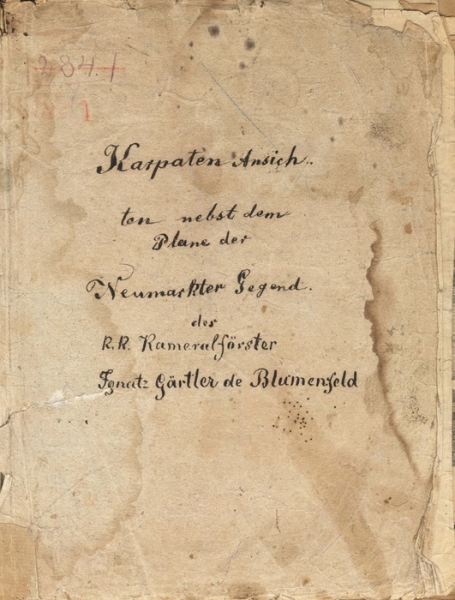 284.1
1
Karpaten Ansich..
ten nebst dem
Plane der
Neumarkter Gegend.
des
K.K. Kameralförster
Ignatz Gärtler de Blumenfeld